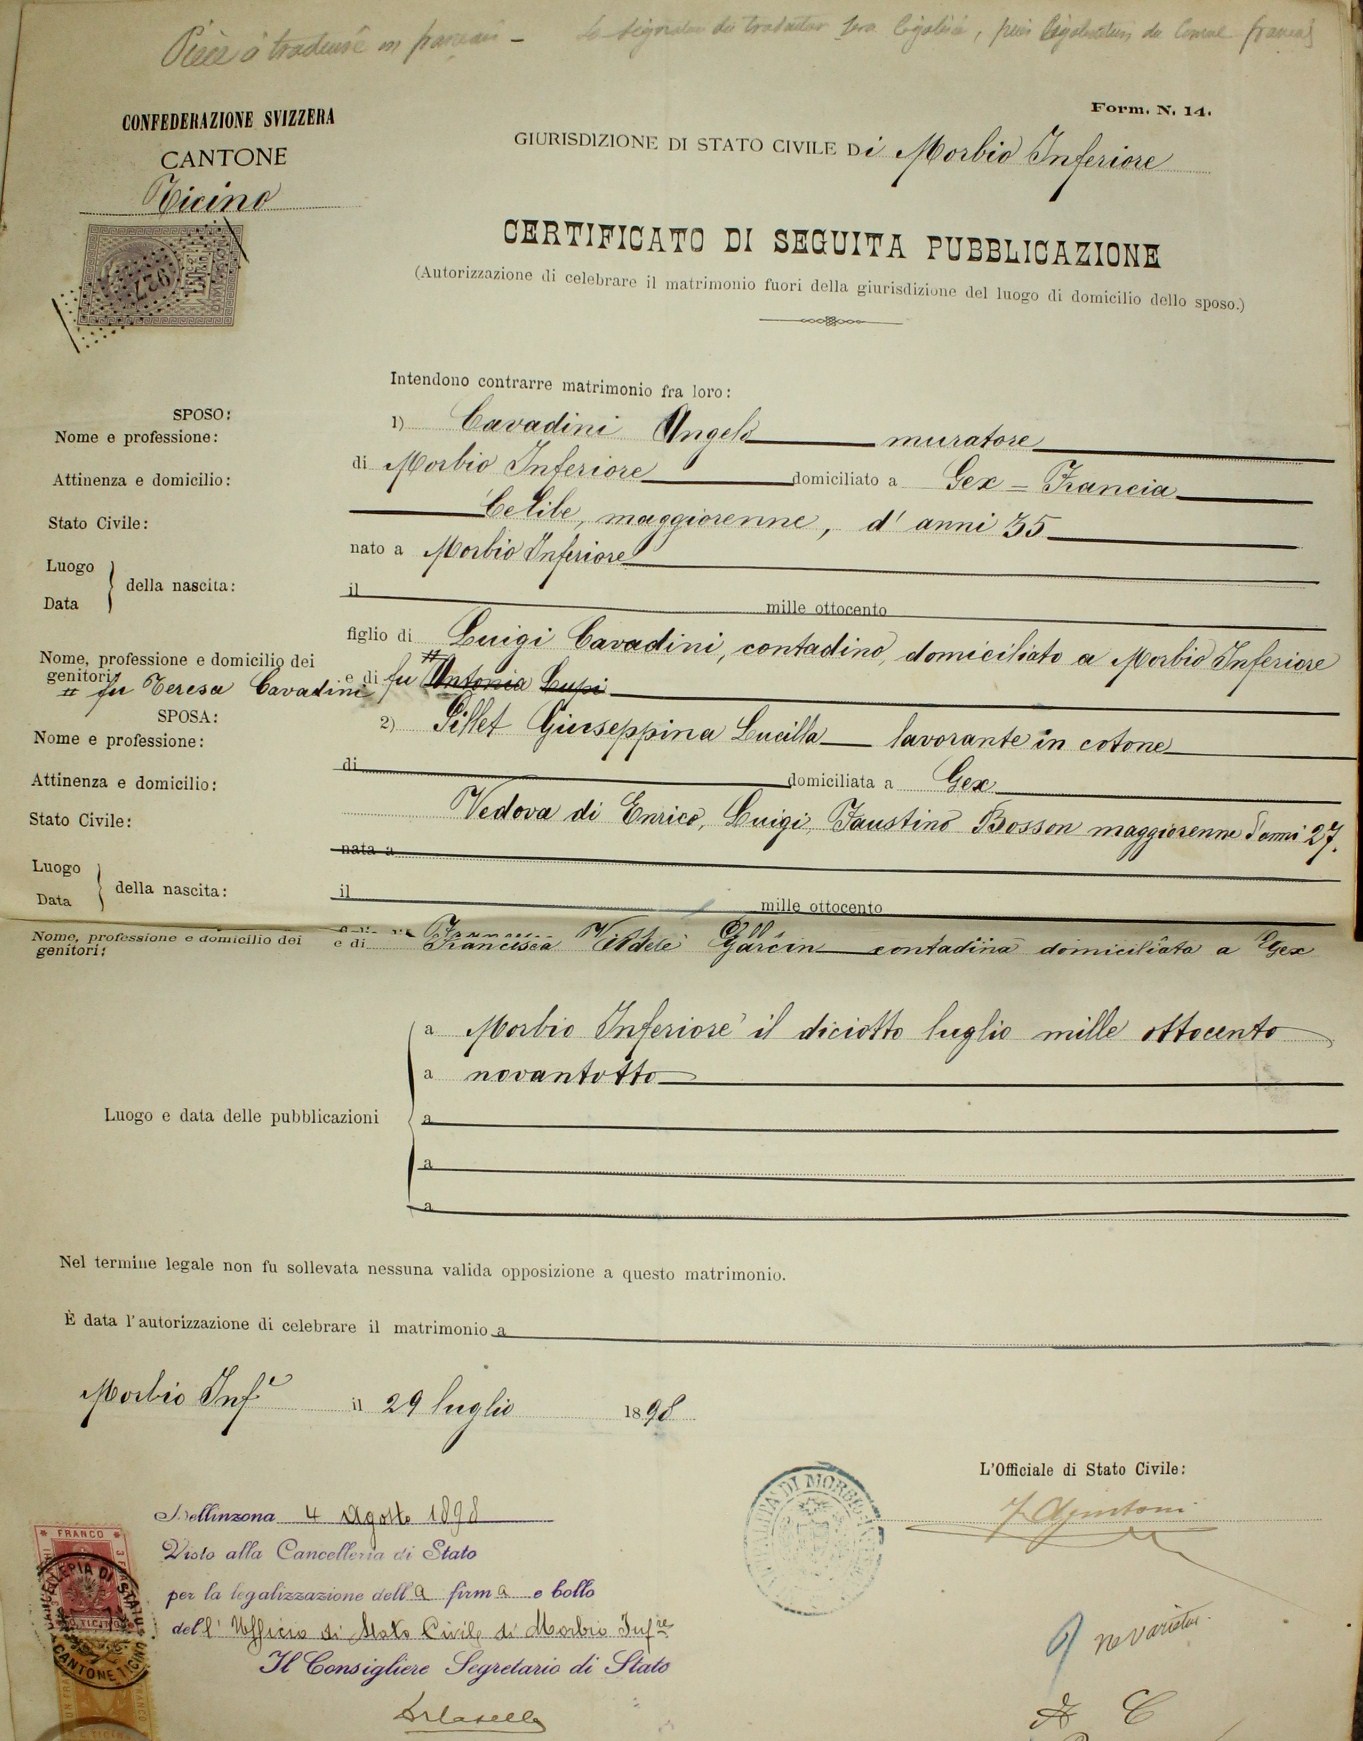 Pièce à traduire en français – La signature du traducteur sera légalisée, puis légalisation du Consul français
CONFEDERAZIONE SVIZZERA
CANTONE
Ticino
Form. N. 14.
GIURISDIZIONE DI STATO CIVILE Di Morbio Inferiore
CERTIFICATO DI SEGUITA PUBBLICAZIONE
(Autorizzazione di celebrare il matrimonio fuori della giurisdizione del luogo di domicilio dello sposo.)
927
Intendono contrarre matrimonio fra loro:
SPOSO:
Nome e professione: 1) Cavadini Angelo muratore
Attinenza e domicilio: di Morbio Inferiore domiciliato a Gex = Francia
Stato Civile: Celibe, maggiorenne, d' anni 35
Luogo Data della nascita: nato a Morbio Inferiore
il mille ottocento
Nome, professione e domicilio dei genitori: figlio di Luigi Cavadini, contadino, domiciliato a Morbio Inferiore
# fu Teresa Cavadini e di fu # Antonia Lupi
SPOSA:
Nome e professione: 2) Pillet Giuseppina Lucilla lavorante in cotone
Attinenza e domicilio: di domiciliata a Gex
Stato Civile: Vedova di Enrico, Luigi, Faustino Bosson maggiorenne d'anni 27.
Luogo Data della nascita: nata a
il mille ottocento
Nome, professione e domicilio dei genitori: e di Francesca Garcin contadina domiciliata a Gex
Luogo e data delle pubblicazioni
a Morbio Inferiore il diciotto luglio mille ottocento
a novantotto
a
a
a
Nel termine legale non fu sollevata nessuna valida opposizione a questo matrimonio.
È data l'autorizzazione di celebrare il matrimonio a
Morbio Infe il 29 luglio 1898
L'Officiale di Stato Civile:
Bellinzona 4 Agosto 1898
Visto alla Cancelleria di Stato
per la legalizzazione della firma e bollo
dell' Ufficio di Stato Civile di Morbio Infre
Il Consigliere Segretario di Stato
FRANCO
CANCELLERIA DI STATO
CANTONE TICINO
ne varietur
A C